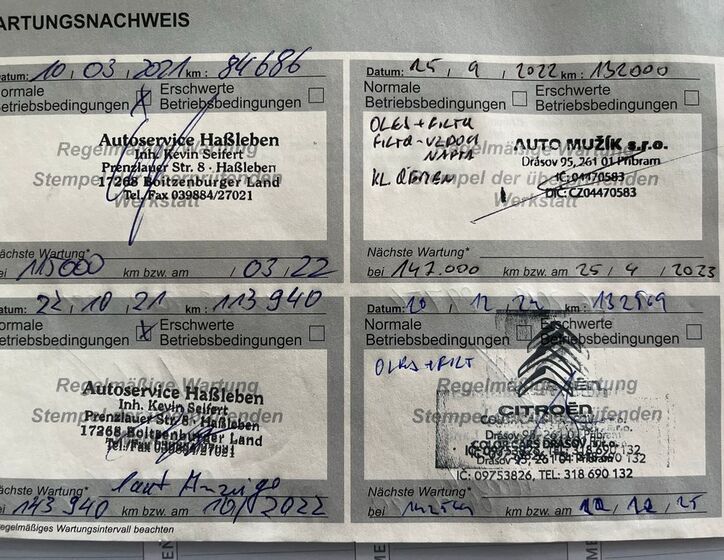 ARTUNGSNACHWEIS
Datum: 10, 03, 2021 km: 84686
ormale
Betriebsbedingungen
Erschwerte
Betriebsbedingungen
Regelmäßige Wartung
Stempel der überprüfenden
Werkstatt
Autoservice Haßleben
Inh. Kevin Seifert
Prenzlauer Str. 8 · Haßleben
17268 Boitzenburger Land
Tel./Fax 039884/27021
ächste Wartung*
ei 115000 km bzw. am / 03, 22
Datum: 15, 9, 2022 km: 132000
Normale
Betriebsbedingungen
Erschwerte
Betriebsbedingungen
OLEJ + FILTR
FILTR -
NAFTA
KL
AUTO MUŽÍK s.r.o.
Drásov 95, 261 01 Příbram
IČ: 04470583
DIC: CZ04470583
Stempel der überprüfenden
Werkstatt
Nächste Wartung*
bei 147.000 km bzw. am 25, 9, 2023
atum: 22, 10, 21 km: 113940
ormale
Betriebsbedingungen
Erschwerte
Betriebsbedingungen
Regelmäßige Wartung
Stempel der überprüfenden
Werkstatt
Autoservice Haßleben
Inh. Kevin Seifert
Prenzlauer Str. 8 · Haßleben
17268 Boitzenburger Land
Tel./Fax 039884/27021
ächste Wartung* laut Anzeige
ei 143940 km bzw. am 10, 2022
regelmäßiges Wartungsintervall beachten
Datum: 12, 24 km: 132569
Normale
Betriebsbedingungen
Erschwerte
Betriebsbedingungen
OLEJ + FILT
Regelmäßige Wartung
CITROËN
COLOR CARS DRASOV, s.r.o.
Drásov 95, 261 01 Příbram
IČ: 09753826, TEL: 318 690 132
Nächste Wartung*
bei km bzw. am 12, 25